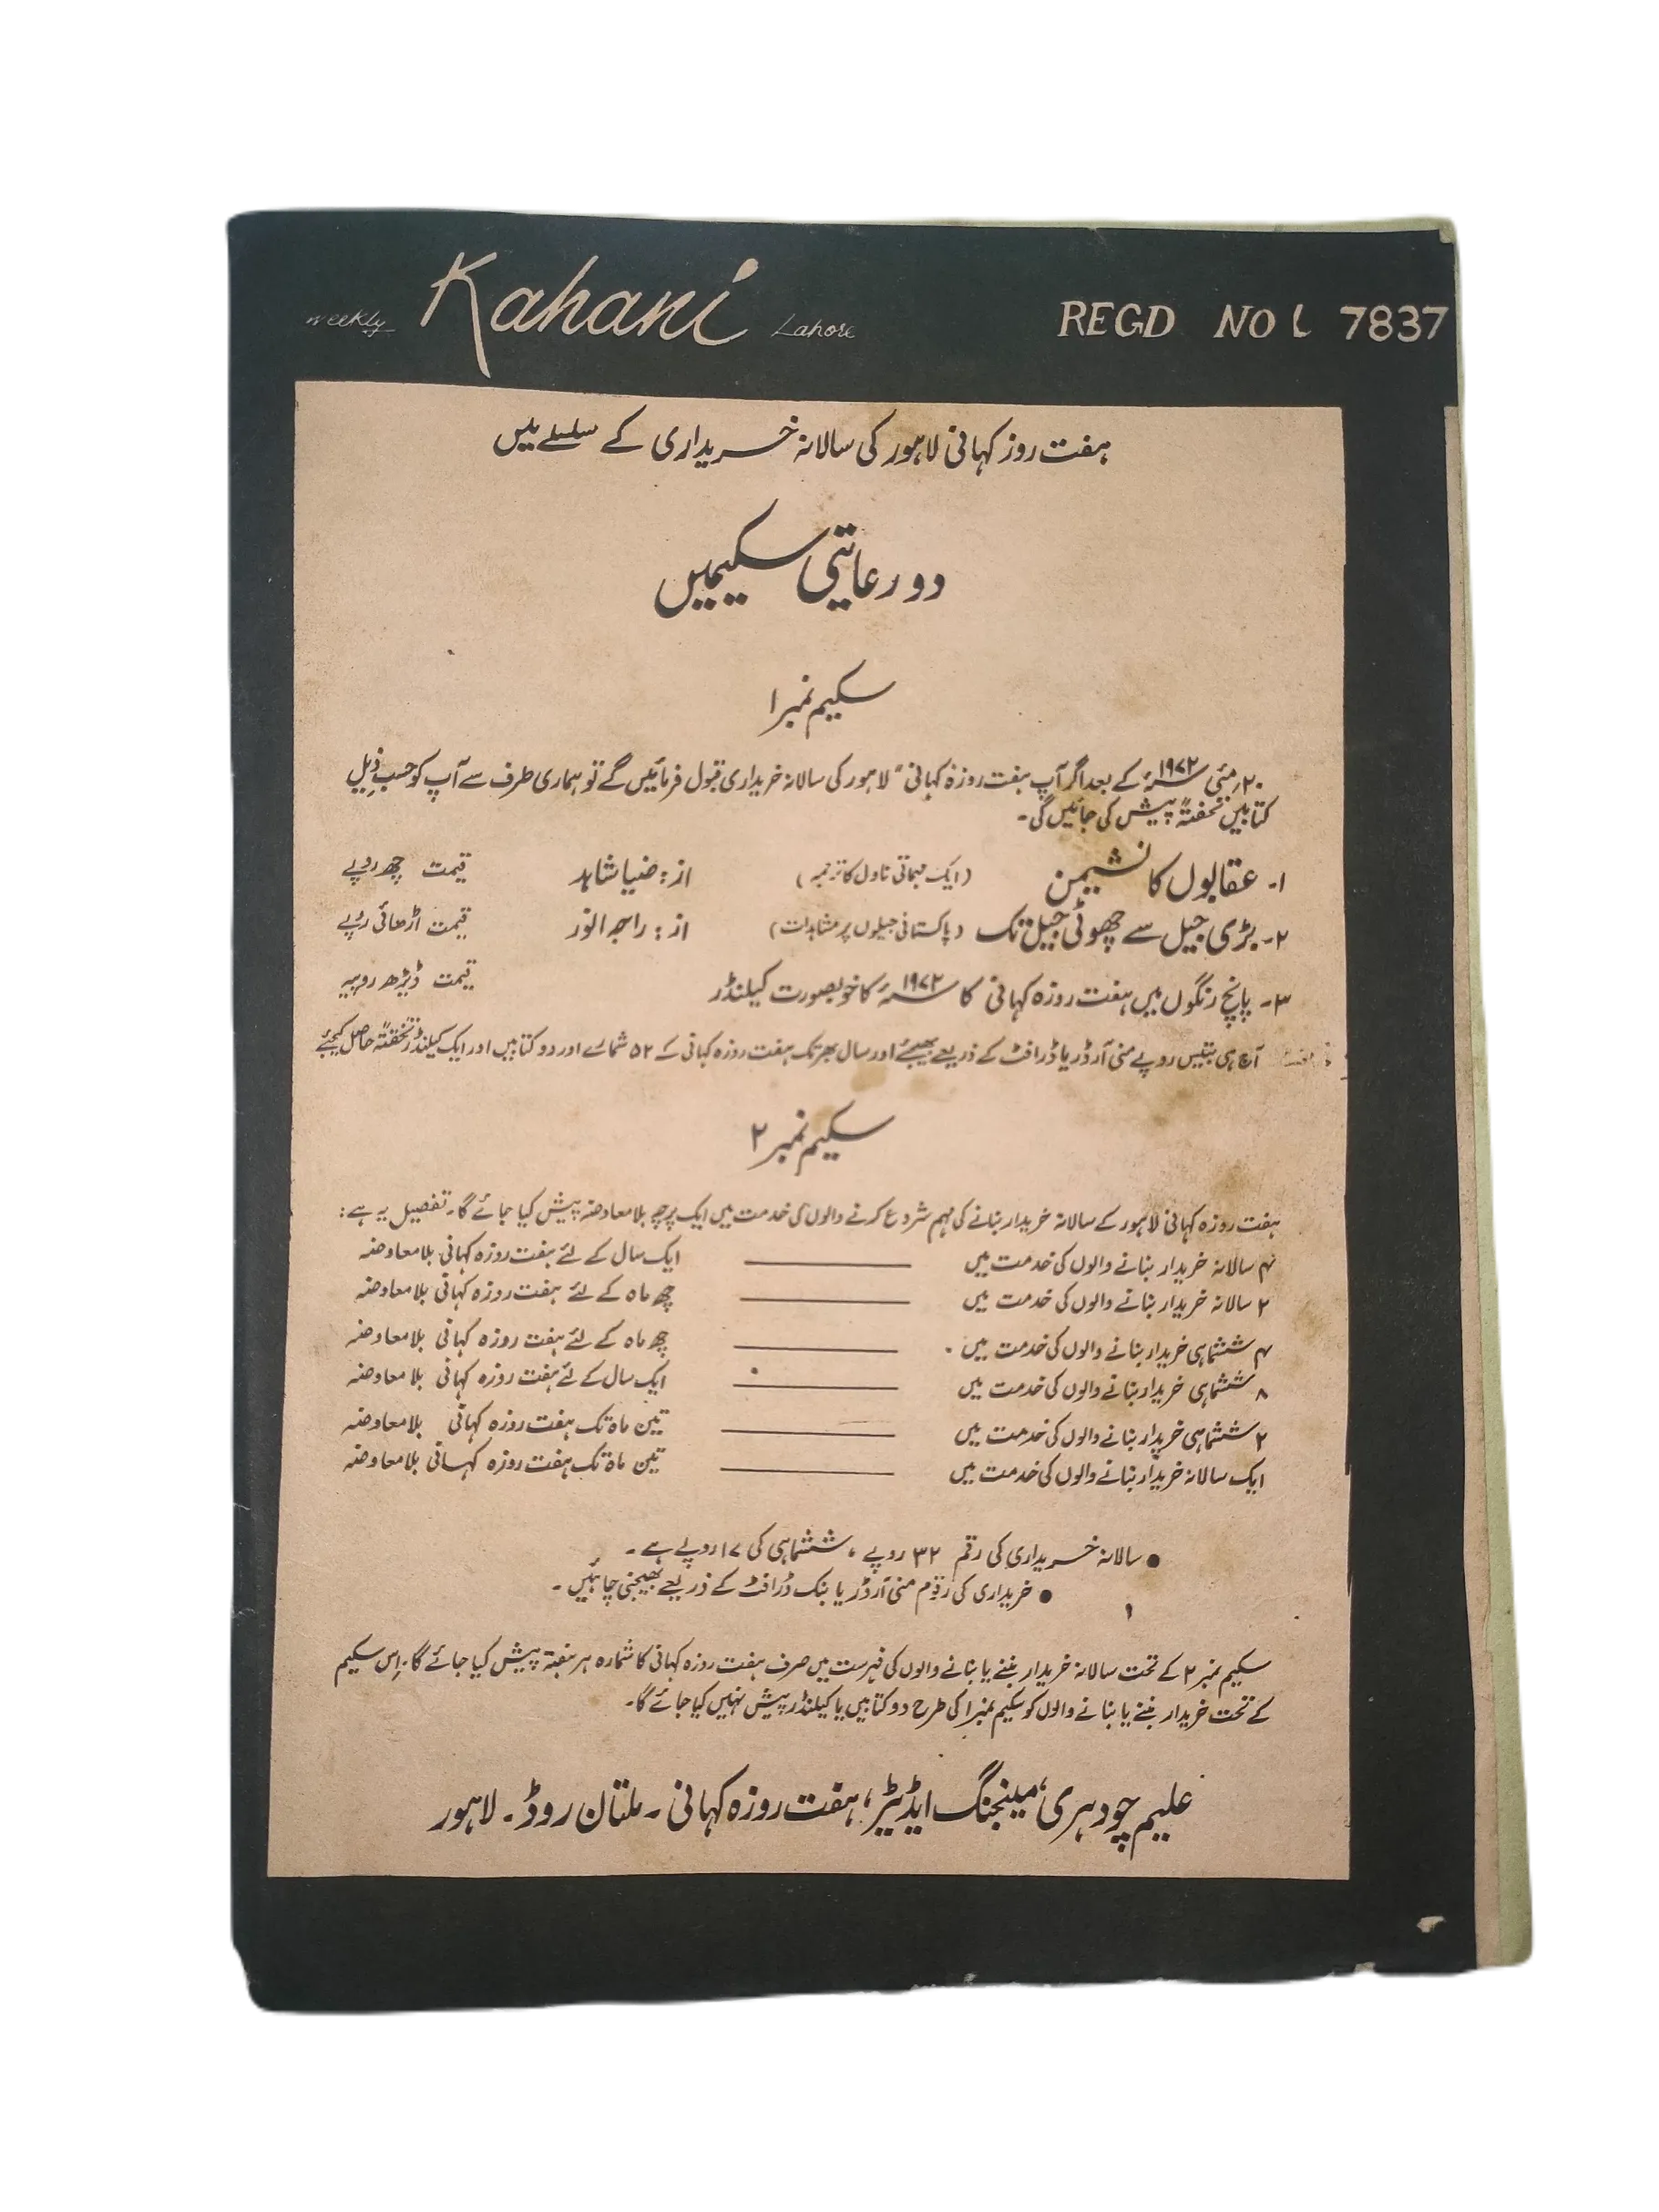 weekly Kahani Lahore REGD NO L 7837
ہفت روز کہانی لاہور کی سالانہ خریداری کے سلسلے میں
دو رعایتی سکیمیں
سکیم نمبر ۱
۲۰ مئی ۱۹۷۲ء کے بعد اگر آپ ہفت روزہ کہانی" لاہور کی سالانہ خریداری قبول فرمائیں گے تو ہماری طرف سے آپ کو حسب ذیل
کتابیں تحفتہً پیش کی جائیں گی۔
۱۔ عقابوں کا نشیمن (ایک مہماتی ناول کا ترجمہ) از: ضیا شاہد قیمت چھ روپے
۲۔ بڑی جیل سے چھوٹی جیل تک (پاکستانی جیلوں پر مشاہدات) از: راجہ انور قیمت اڑھائی روپے
۳۔ پانچ رنگوں میں ہفت روزہ کہانی کا ۱۹۷۲ء کا خوبصورت کیلنڈر قیمت ڈیڑھ روپیہ
آج ہی بتیس روپے منی آرڈر یا ڈرافٹ کے ذریعے بھیجئے اور سال بھر تک ہفت روزہ کہانی کے ۵۲ شمارے اور دو کتابیں اور ایک کیلنڈر تحفتہً حاصل کیجئے
سکیم نمبر ۲
ہفت روزہ کہانی لاہور کے سالانہ خریدار بنانے کی مہم شروع کرنے والوں کی خدمت میں ایک پرچہ بلا معاوضہ پیش کیا جائے گا۔ تفصیل یہ ہے:
۴ سالانہ خریدار بنانے والوں کی خدمت میں ــــــ ایک سال کے لئے ہفت روزہ کہانی بلا معاوضہ
۲ سالانہ خریدار بنانے والوں کی خدمت میں ــــــ چھ ماہ کے لئے ہفت روزہ کہانی بلا معاوضہ
۴ ششماہی خریدار بنانے والوں کی خدمت میں ــــــ چھ ماہ کے لئے ہفت روزہ کہانی بلا معاوضہ
۸ ششماہی خریدار بنانے والوں کی خدمت میں ــــــ ایک سال کے لئے ہفت روزہ کہانی بلا معاوضہ
۲ ششماہی خریدار بنانے والوں کی خدمت میں ــــــ تین ماہ تک ہفت روزہ کہانی بلا معاوضہ
ایک سالانہ خریدار بنانے والوں کی خدمت میں ــــــ تین ماہ تک ہفت روزہ کہانی بلا معاوضہ
● سالانہ خریداری کی رقم ۳۲ روپے، ششماہی کی ۱۷ روپے ہے۔
● خریداری کی رقوم منی آرڈر یا بنک ڈرافٹ کے ذریعے بھیجنی چاہئیں۔
سکیم نمبر ۲ کے تحت سالانہ خریدار بننے یا بنانے والوں کی فہرست میں صرف ہفت روزہ کہانی کا شمارہ ہر ہفتہ پیش کیا جائے گا۔ اِس سکیم
کے تحت خریدار بننے یا بنانے والوں کو سکیم نمبر ۱ کی طرح دو کتابیں یا کیلنڈر پیش نہیں کیا جائے گا۔
علیم چودہری، مینجنگ ایڈیٹر، ہفت روزہ کہانی۔ ملتان روڈ۔ لاہور